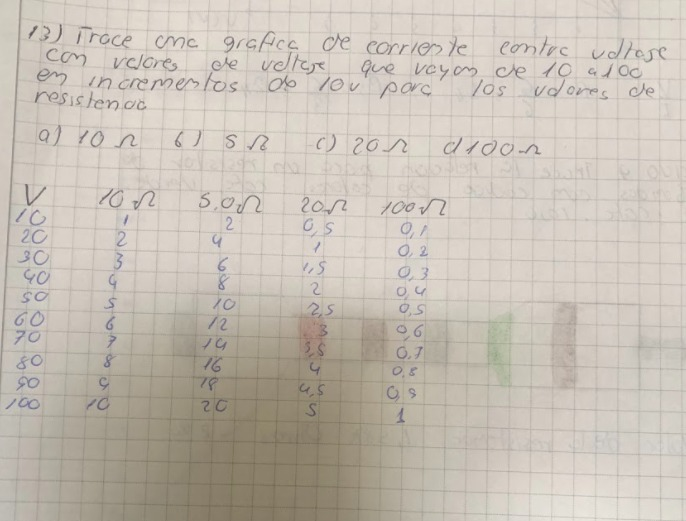 13) Trace una grafica de corriente contra voltaje
con valores de voltaje que vayan de 10 a 100
en incrementos de 10v para los valores de
resistencia
a) 10 Ω b) 5 Ω c) 20 Ω d 100 Ω
V 10 Ω 5,0 Ω 20 Ω 100 Ω
10 1 2 0,5 0,1
20 2 4 1 0,2
30 3 6 1,5 0,3
40 4 8 2 0,4
50 5 10 2,5 0,5
60 6 12 3 0,6
70 7 14 3,5 0,7
80 8 16 4 0,8
90 9 18 4,5 0,9
100 10 20 5 1